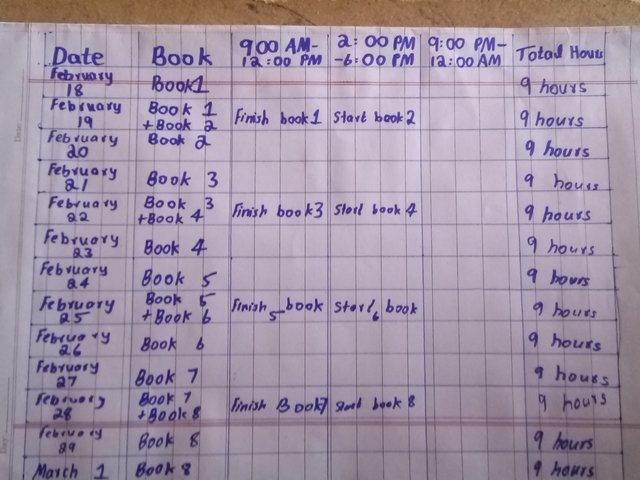 Date Book 9:00 AM-12:00 PM 2:00 PM-6:00 PM 9:00 PM-12:00 AM Total Hours
February 18 Book 1 9 hours
February 19 Book 1 + Book 2 Finish book 1 Start book 2 9 hours
February 20 Book 2 9 hours
February 21 Book 3 9 hours
February 22 Book 3 + Book 4 Finish book 3 Start book 4 9 hours
February 23 Book 4 9 hours
February 24 Book 5 9 hours
February 25 Book 5 + Book 6 Finish book 5 Start book 6 9 hours
February 26 Book 6 9 hours
February 27 Book 7 9 hours
February 28 Book 7 + Book 8 Finish Book 7 Start book 8 9 hours
February 29 Book 8 9 hours
March 1 Book 8 9 hours